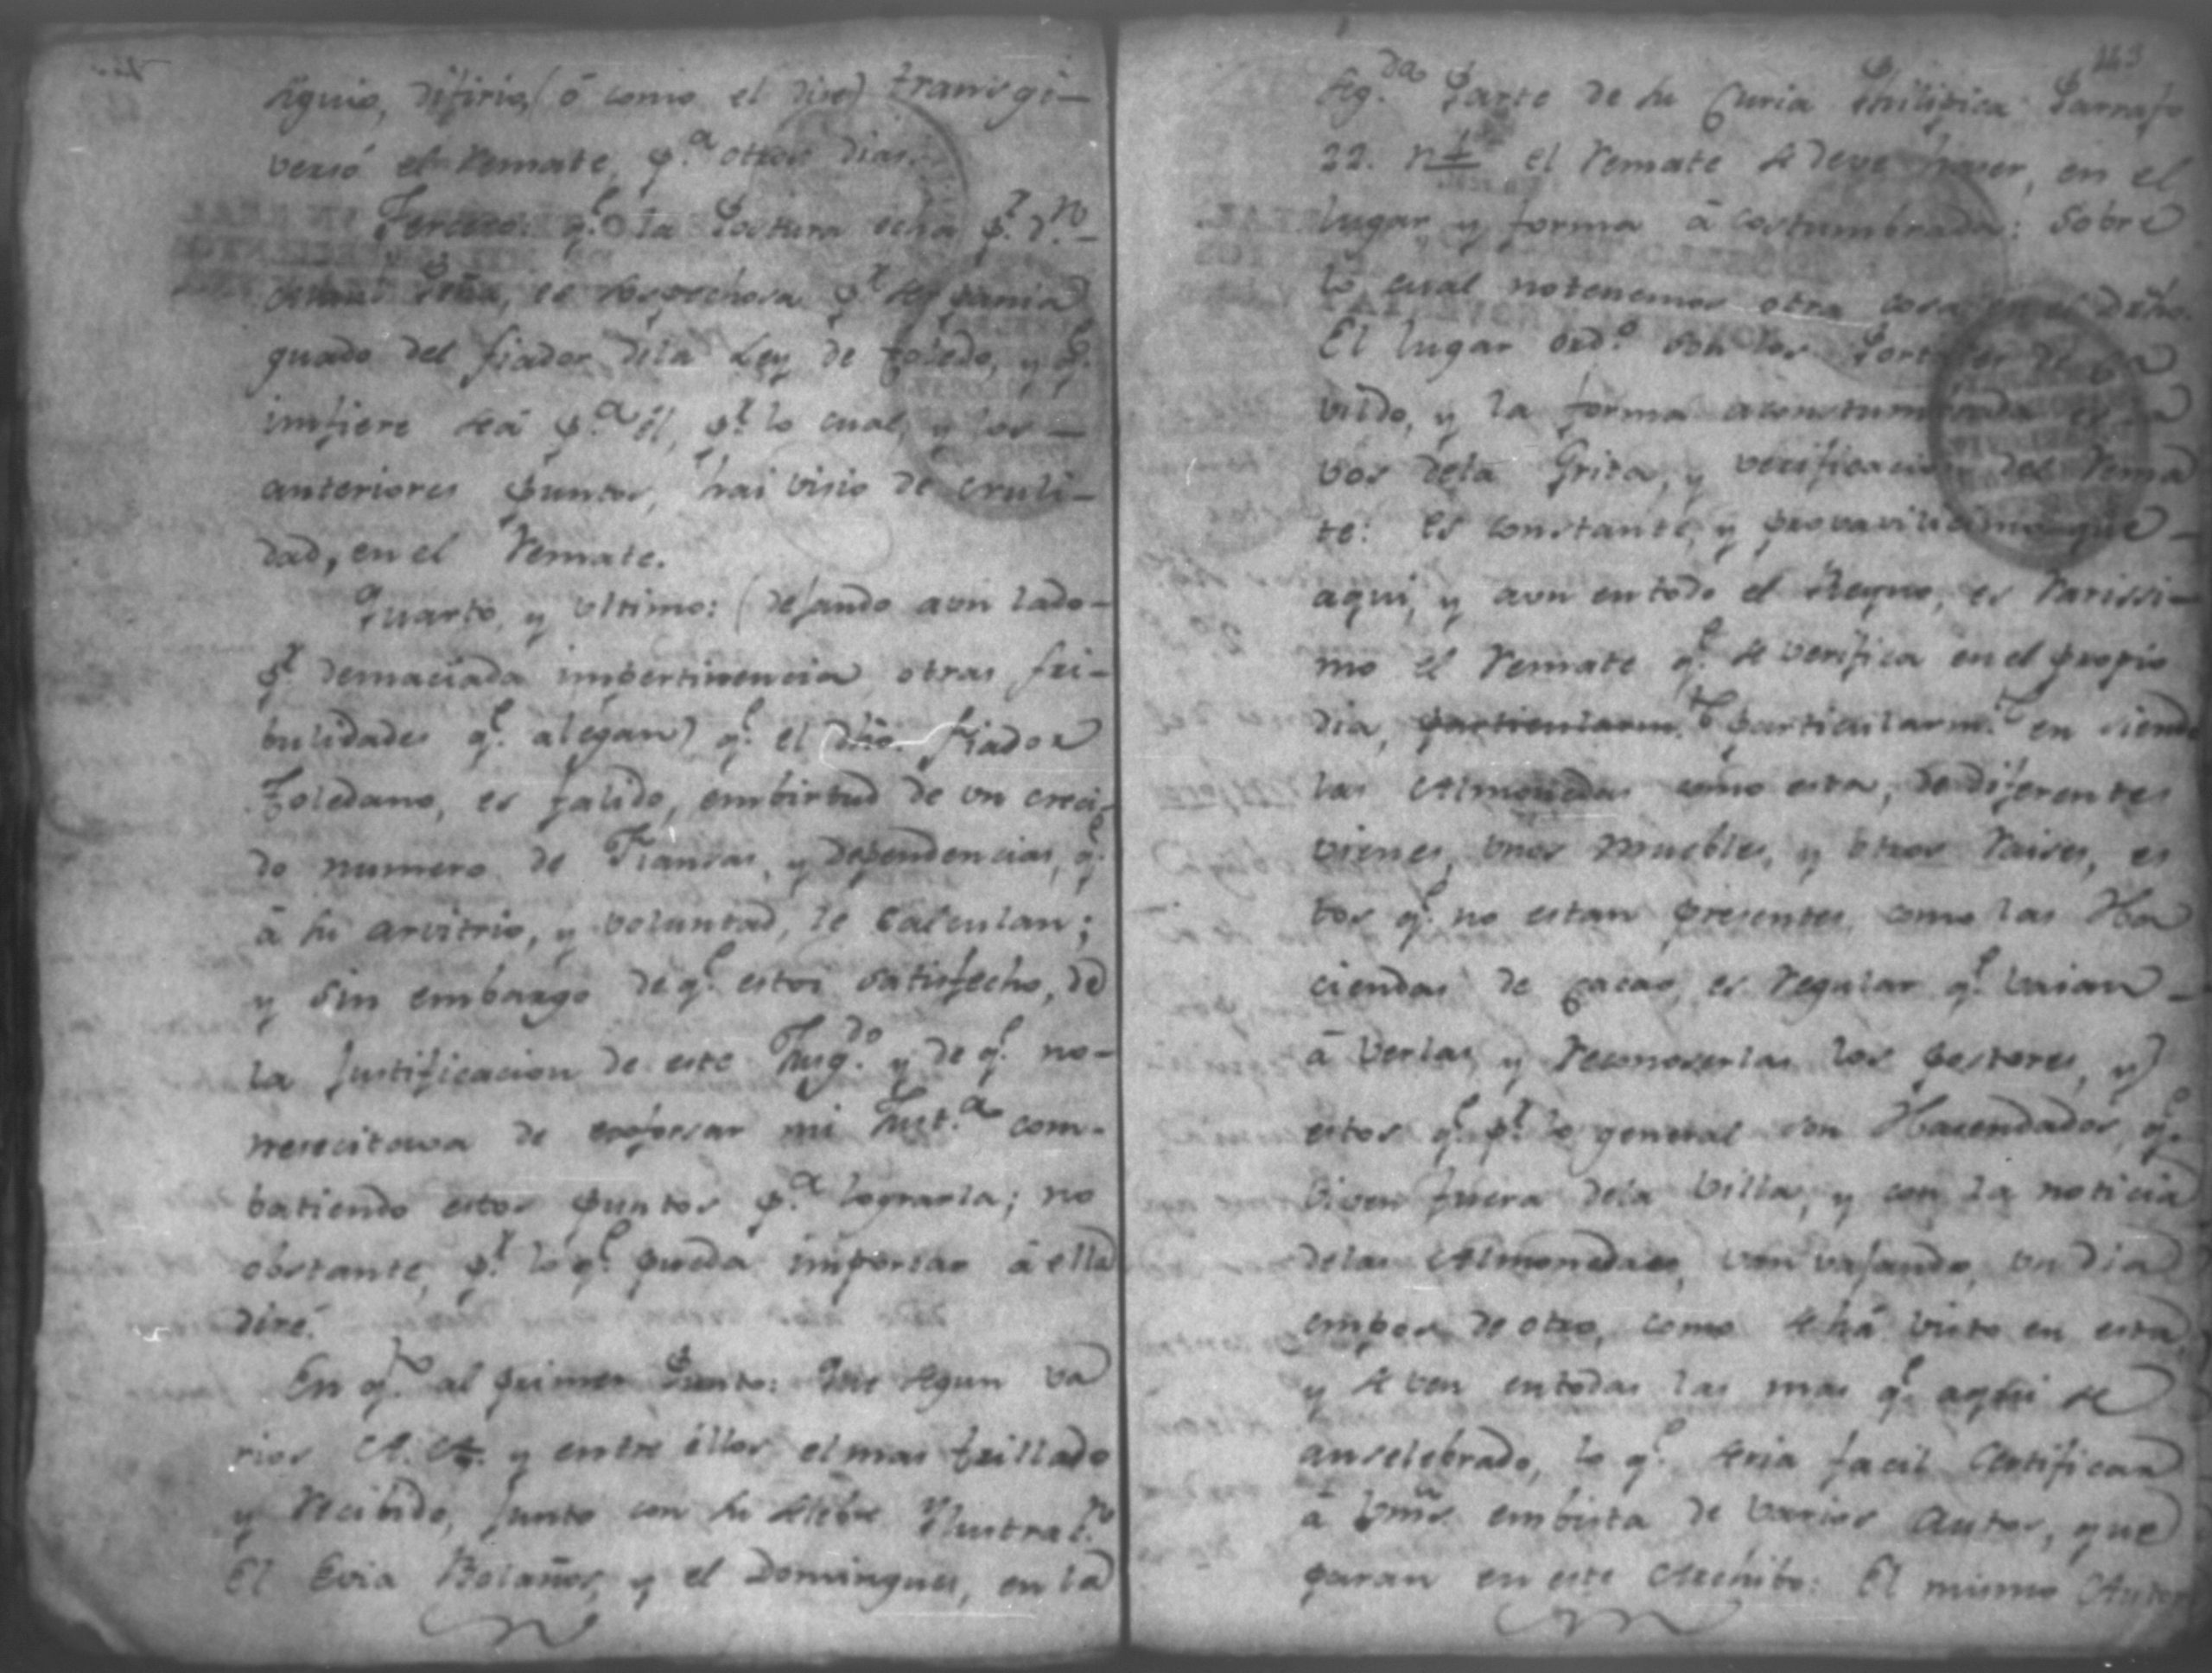 siguio, difirio, (ó como el dise) transgi-
versó el remate, p.ª otros dias.
Tercero: q.e la Postura echa p.r d.n
Peña, es sospechosa p.r ser pania
guado del fiador dela Ley de Toledo, y q.e
imfiere será p.ª él, p.r lo cual, y los -
anteriores puntos, hai visio de cruli-
dad, en el Remate.
Quarto, y ultimo: (dejando aun lado-
p.r demaciada impertinencia otras fri-
bulidades q.e alegan) q.e el dho. fiador
Toledano, es falido, embirtud de un creci-
do numero de Fiansas, y dependencias, q.e
á su arvitrio, y voluntad, le calculan;
y sin embargo de q.e estoi satisfecho, de
la justificacion de este Jusg.do y de q.e no-
nesecitava de esforsar mi Just.ª com-
batiendo estos puntos p.ª lograrla; no
obstante, p.r lo q.e pueda importar á ella
diré.
En q.to al primer Punto: Que segun va
rios A.A. y entre éllos el mas trillado
y recibido, junto con su selebre Ylustrad.r
El Evia Bolaños, y el Domingues, en la
43
Seg.da Parte de su Curia Philipica Parrafo
22. n.1 el remate se deve haser, en el
lugar y forma á costumbrada: Sobre
lo cual notenemos otra cosa en el dro.
El lugar ord.o son los Portales de Ca
vildo, y la forma aconstumbrada es a
vos dela Grita, y verificacion del Rema
te: Es constante, y provavilicimo que -
aqui, y aun entodo el Reyno, es rarissi-
mo el remate q.e se verifica en el propio
dia, particularm.te particularm.te en siendo
las Almonedas como esta, de diferentes
vienes, unos muebles, y otros raises, es
tos q.e no estan presentes, como las Ha
ciendas de cacao, es regular q.e vaian -
á verlas, y reconoserlas los postores, y
estos q.e p.r lo general son Hasendados, q.e
viven fuera dela Villa, y con la noticia
delas Almonedas, van vajando, un dia
empos de otro, como se há visto en esta
y se ven entodas las mas q.e aqui se
anselebrado, lo q.e seria facil Certificar
á Vms. embista de varios Autos, que
paran en este Archibo: El mismo Autor